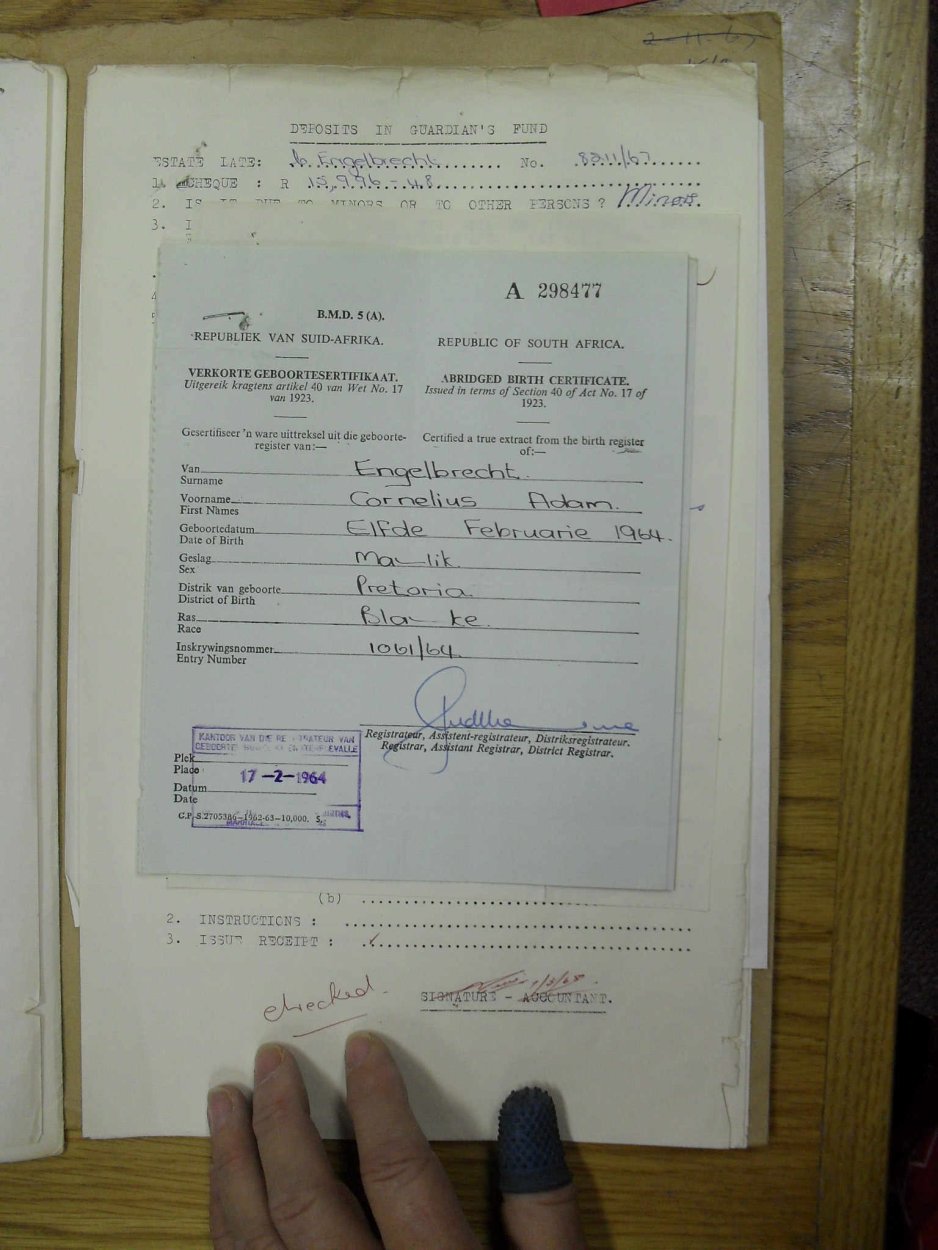 2-11-67
DEPOSITS IN GUARDIAN'S FUND
ESTATE LATE: Engelbrecht No. 8211/67
1. CHEQUE : R 15,996-48
2. IS IT DUE TO MINORS OR TO OTHER PERSONS ? Minors.
3. I
A 298477
B.M.D. 5 (A).
REPUBLIEK VAN SUID-AFRIKA.
REPUBLIC OF SOUTH AFRICA.
VERKORTE GEBOORTESERTIFIKAAT.
Uitgereik kragtens artikel 40 van Wet No. 17
van 1923.
ABRIDGED BIRTH CERTIFICATE.
Issued in terms of Section 40 of Act No. 17 of
1923.
Gesertifiseer 'n ware uittreksel uit die geboorte-
register van:—
Certified a true extract from the birth register
of:—
Van Engelbrecht.
Surname
Voorname Cornelius Adam.
First Names
Geboortedatum Elfde Februarie 1964.
Date of Birth
Geslag Manlik.
Sex
Distrik van geboorte Pretoria
District of Birth
Ras Blanke.
Race
Inskrywingsnommer 1061/64.
Entry Number
Registrateur, Assistent-registrateur, Distriksregistrateur.
Registrar, Assistant Registrar, District Registrar.
KANTOOR VAN DIE REGISTRATEUR VAN
Plek
Place
17-2-1964
Datum
Date
G.P.-S.2705386—1962-63—10,000. S.
(b)
2. INSTRUCTIONS :
3. ISSUE RECEIPT :
checked.
SIGNATURE - ACCOUNTANT.